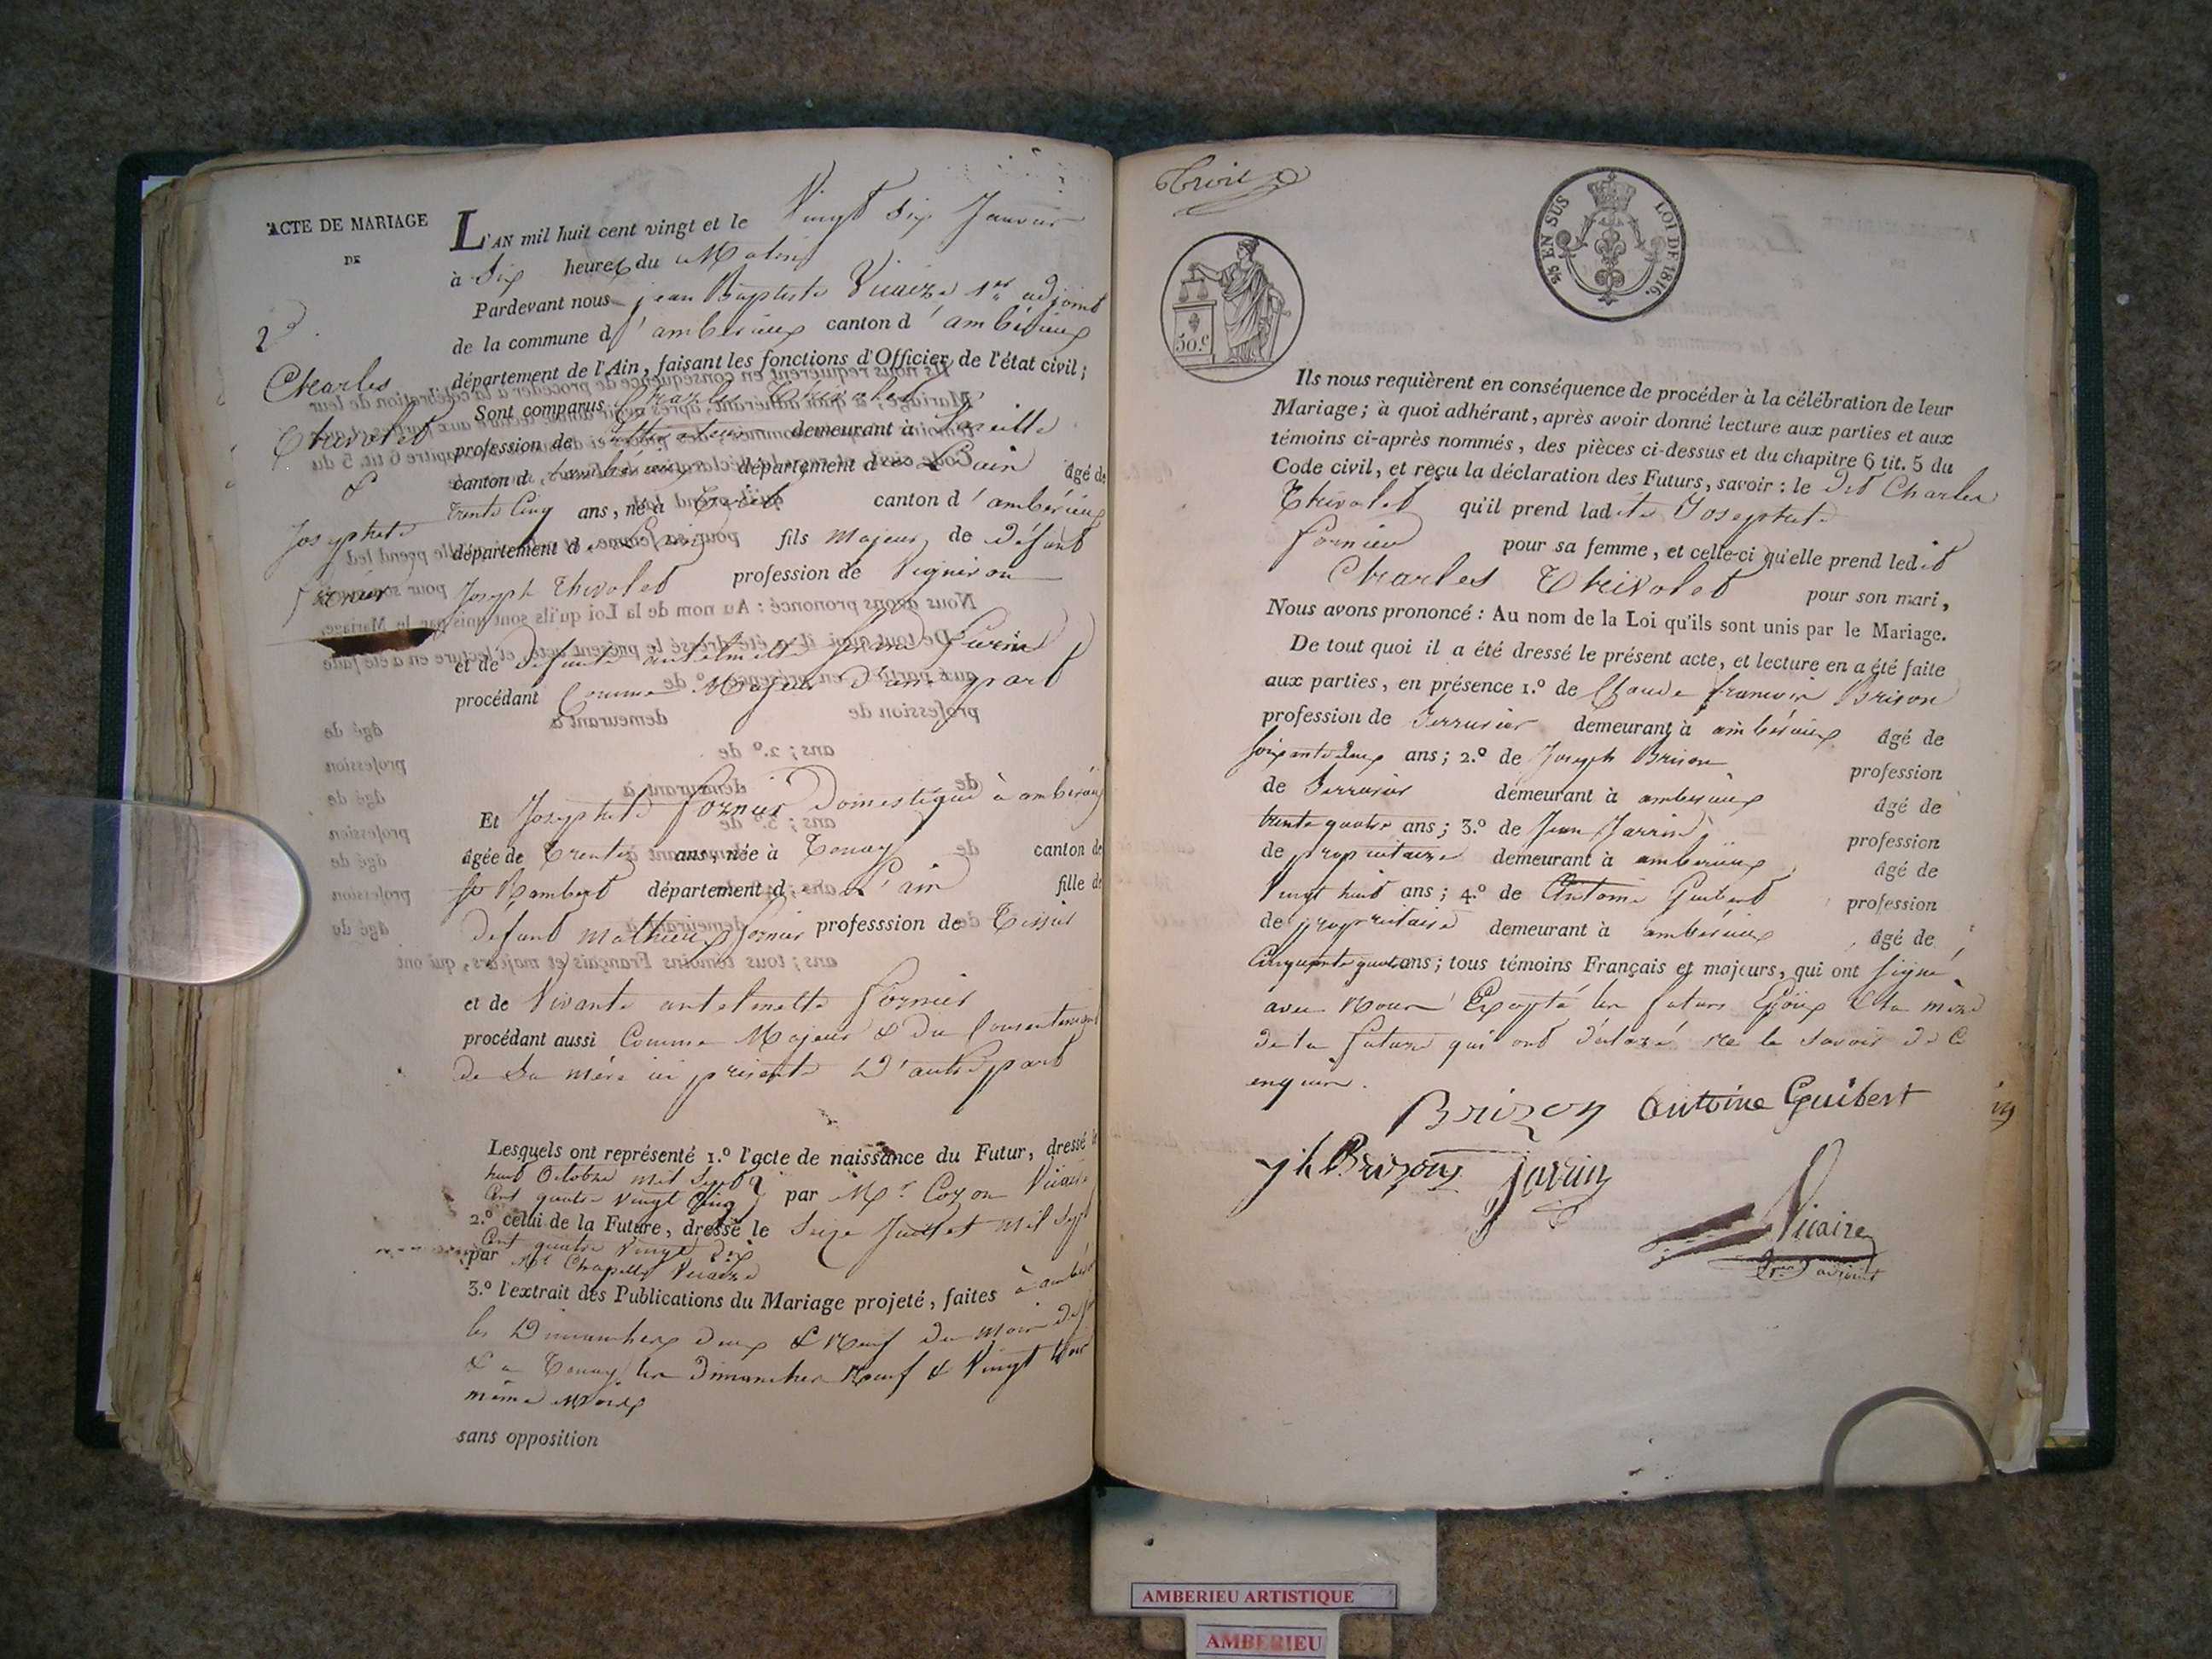 ACTE DE MARIAGE
DE
2e.
Charles
Thivolet
&
Josephete
fornier
L'AN mil huit cent vingt et le Vingt Six Janvier
à Six heures du Matin
Pardevant nous jean Baptiste Vicaire 1er adjoint
de la commune d'ambérieux canton d'ambérieux
département de l'Ain, faisant les fonctions d'Officier de l'état civil;
Sont comparus Charles Thivolet
profession de Cultivateur demeurant à
canton d'ambérieux département de L'ain âgé de
trente Cinq ans, né à canton d'ambérieux
département de L'ain fils Majeur de défunt
Joseph Thivolet profession de Vigneron
et de défunte antelmette
procédant Comme Majeur d'une part
Et Josephete fornier Domestique à ambérieux
âgée de Trente ans, née à Tenay canton de
St Rambert département de L'ain fille de
defunt mathieux fornier professsion de Tissier
et de Vivante antelmette fornier
procédant aussi Comme Majeur & du Consentement
de Sa mère ici présente D'autre part
Lesquels ont représenté 1.º l'acte de naissance du Futur, dressé le
huit Octobre mil Sept
Cent quatre Vingt Cinq par Mr. Cozon Vicaire
2.º celui de la Future, dressé le Seize Juillet mil Sept
Cent quatre Vingt Dix
par Mr Chapelle Vicaire
3.º l'extrait des Publications du Mariage projeté, faites à
les Dimanches deux & Neuf du mois
& a Tenay les Dimanches Neuf & Vingt
même Mois
sans opposition
5/6 EN SUS LOI DE 1816.
50.c
Ils nous requièrent en conséquence de procéder à la célébration de leur
Mariage; à quoi adhérant, après avoir donné lecture aux parties et aux
témoins ci-après nommés, des pièces ci-dessus et du chapitre 6 tit. 5 du
Code civil, et reçu la déclaration des Futurs, savoir: le dit Charles
Thivolet qu'il prend ladite Josephete
fornier pour sa femme, et celle-ci qu'elle prend ledit
Charles Thivolet pour son mari,
Nous avons prononcé: Au nom de la Loi qu'ils sont unis par le Mariage.
De tout quoi il a été dressé le présent acte, et lecture en a été faite
aux parties, en présence 1.º de Claude francois Brison
profession de Serrurier demeurant à ambérieux âgé de
soixante deux ans; 2.º de Joseph Brison profession
de Serrurier demeurant à ambérieux âgé de
trente quatre ans; 3.º de Jean Jarrin profession
de propriétaire demeurant à ambérieux âgé de
Vingt huit ans; 4.º de Antoine Guibert profession
de propriétaire demeurant à ambérieux âgé de
Cinquante quatre ans; tous témoins Français et majeurs, qui ont signé
avec Nous Excepté les futurs Epoux & la mère
de la future qui ont déclaré ne le Savoir de ce
enquis.
Brizon Antoine Guibert
jh Brizon jarrin
Vicaire
1er adjoint
AMBERIEU ARTISTIQUE
AMBERIEU